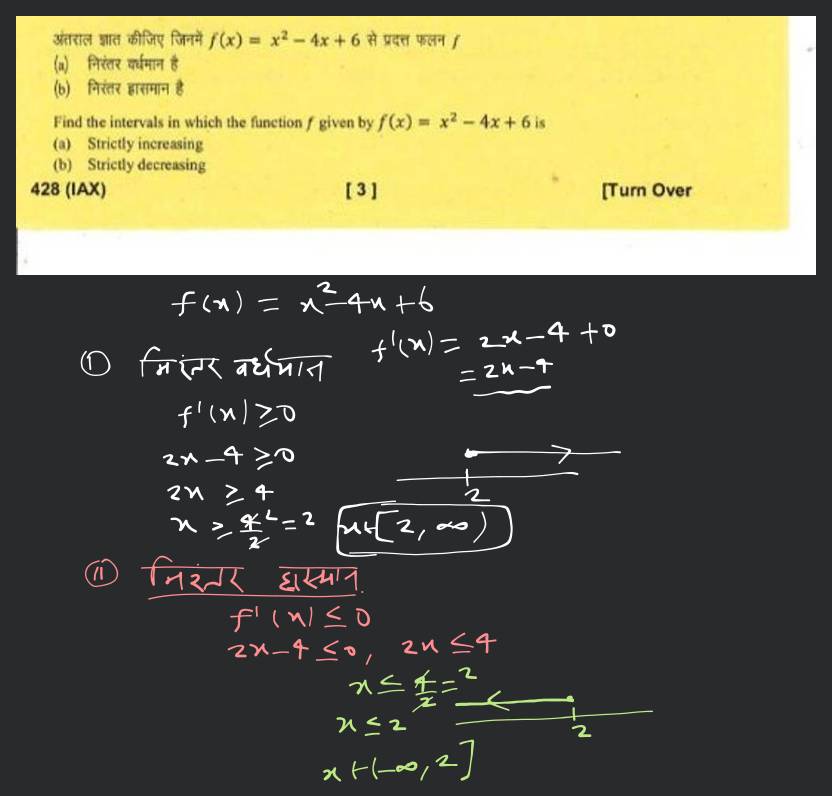 अंतराल ज्ञात कीजिए जिनमें f(x) = x² – 4x + 6 से प्रदत्त फलन f
(a) निरंतर वर्धमान है
(b) निरंतर ह्रासमान है
Find the intervals in which the function f given by f(x) = x² – 4x + 6 is
(a) Strictly increasing
(b) Strictly decreasing
428 (IAX) [ 3 ] [Turn Over
f(x) = x² - 4x + 6
f'(x) = 2x - 4 + 0
= 2x - 4
(I) निरंतर वर्धमान
f'(x) ≥ 0
2x - 4 ≥ 0
2x ≥ 4
x ≥ 4/2 = 2
2
x ∈ [2, ∞)
(II) निरंतर ह्रासमान
f'(x) ≤ 0
2x - 4 ≤ 0, 2x ≤ 4
x ≤ 4/2 = 2
x ≤ 2
2
x ∈ (-∞, 2]